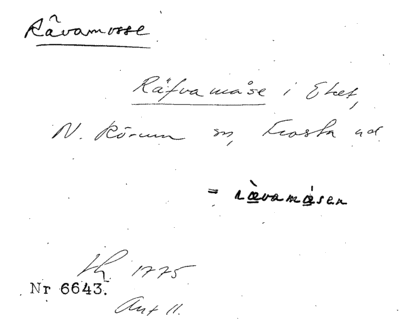 Rävamosse
Räfvamåse i Eket,
N. Rörum sn, Frosta hd
= rävamåsen
Lh 1775
Nr 6643.
Akt 11.